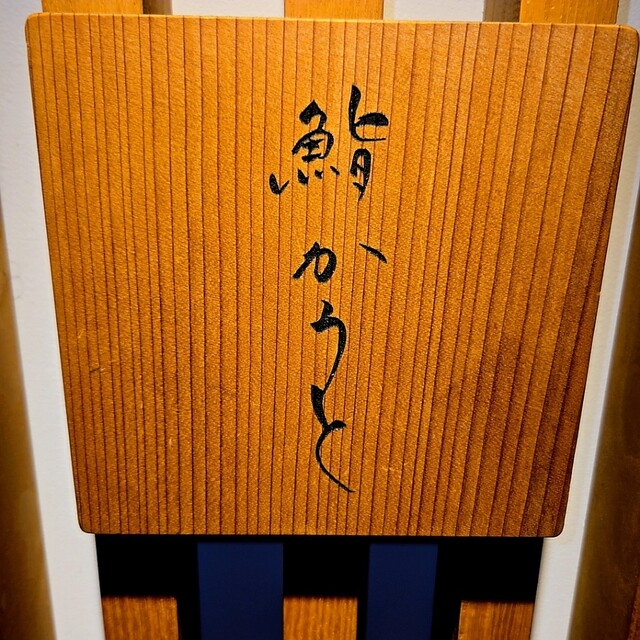 鮨かうと